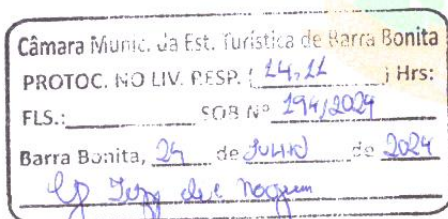 Câmara Munic. da Est. Turística de Barra Bonita
PROTOC. NO LIV. RESP. ( 14,11 ) Hrs:
FLS.: SOB Nº 194/2024
Barra Bonita, 24 de Julho de 2024